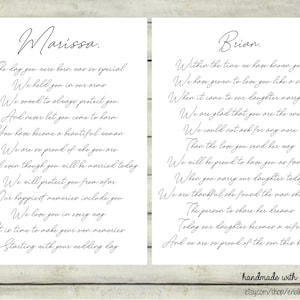 Marissa.
The day you were born was so special
We held you in our arms
We vowed to always protect you
And never let you come to harm
You have become a beautiful woman
We are so proud of who you are
Even though you will be married today
We will protect you from afar
Our happiest memories include you
We love you in every way
It is time to make your own memories
Starting with your wedding day
Brian.
Within the time we have known you
We have grown to love you like a
When it came to our daughter marry
We are glad that you are the one
We could not ask for any more
Than the love you send her way
We will be proud to have you as
When you marry our daughter today
We are thankful she found the man
The person to share her dream
Today our daughter becomes a wife
And we are so proud of the son that
handmade with
etsy.com/shop/